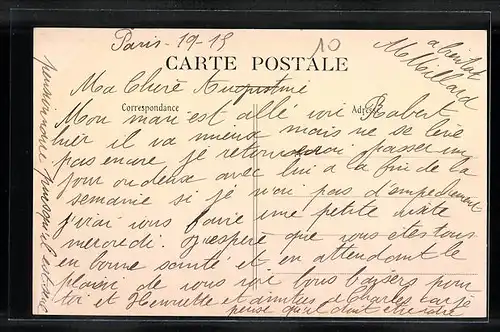 Paris-19-15
10
a bientot
M Maillard
CARTE POSTALE
Ma Chère Augustine
Correspondance
Adresse
Mon mari est allé voir Robert
hier il va mieux mais ne se lève
pas encore, je retournerai passer un
jour ou deux avec lui a la fin de la
semaine si je n'ai pas d'empechement
j'irai vous faire une petite visite
mercredi. j'espère que vous êtes tous
en bonne santé et en attendant le
plaisir de vous voir bons baisers pour
toi et Henriette et amities a Charles car je
pense qu'il doit etre
pensionnaire puisqu'il est